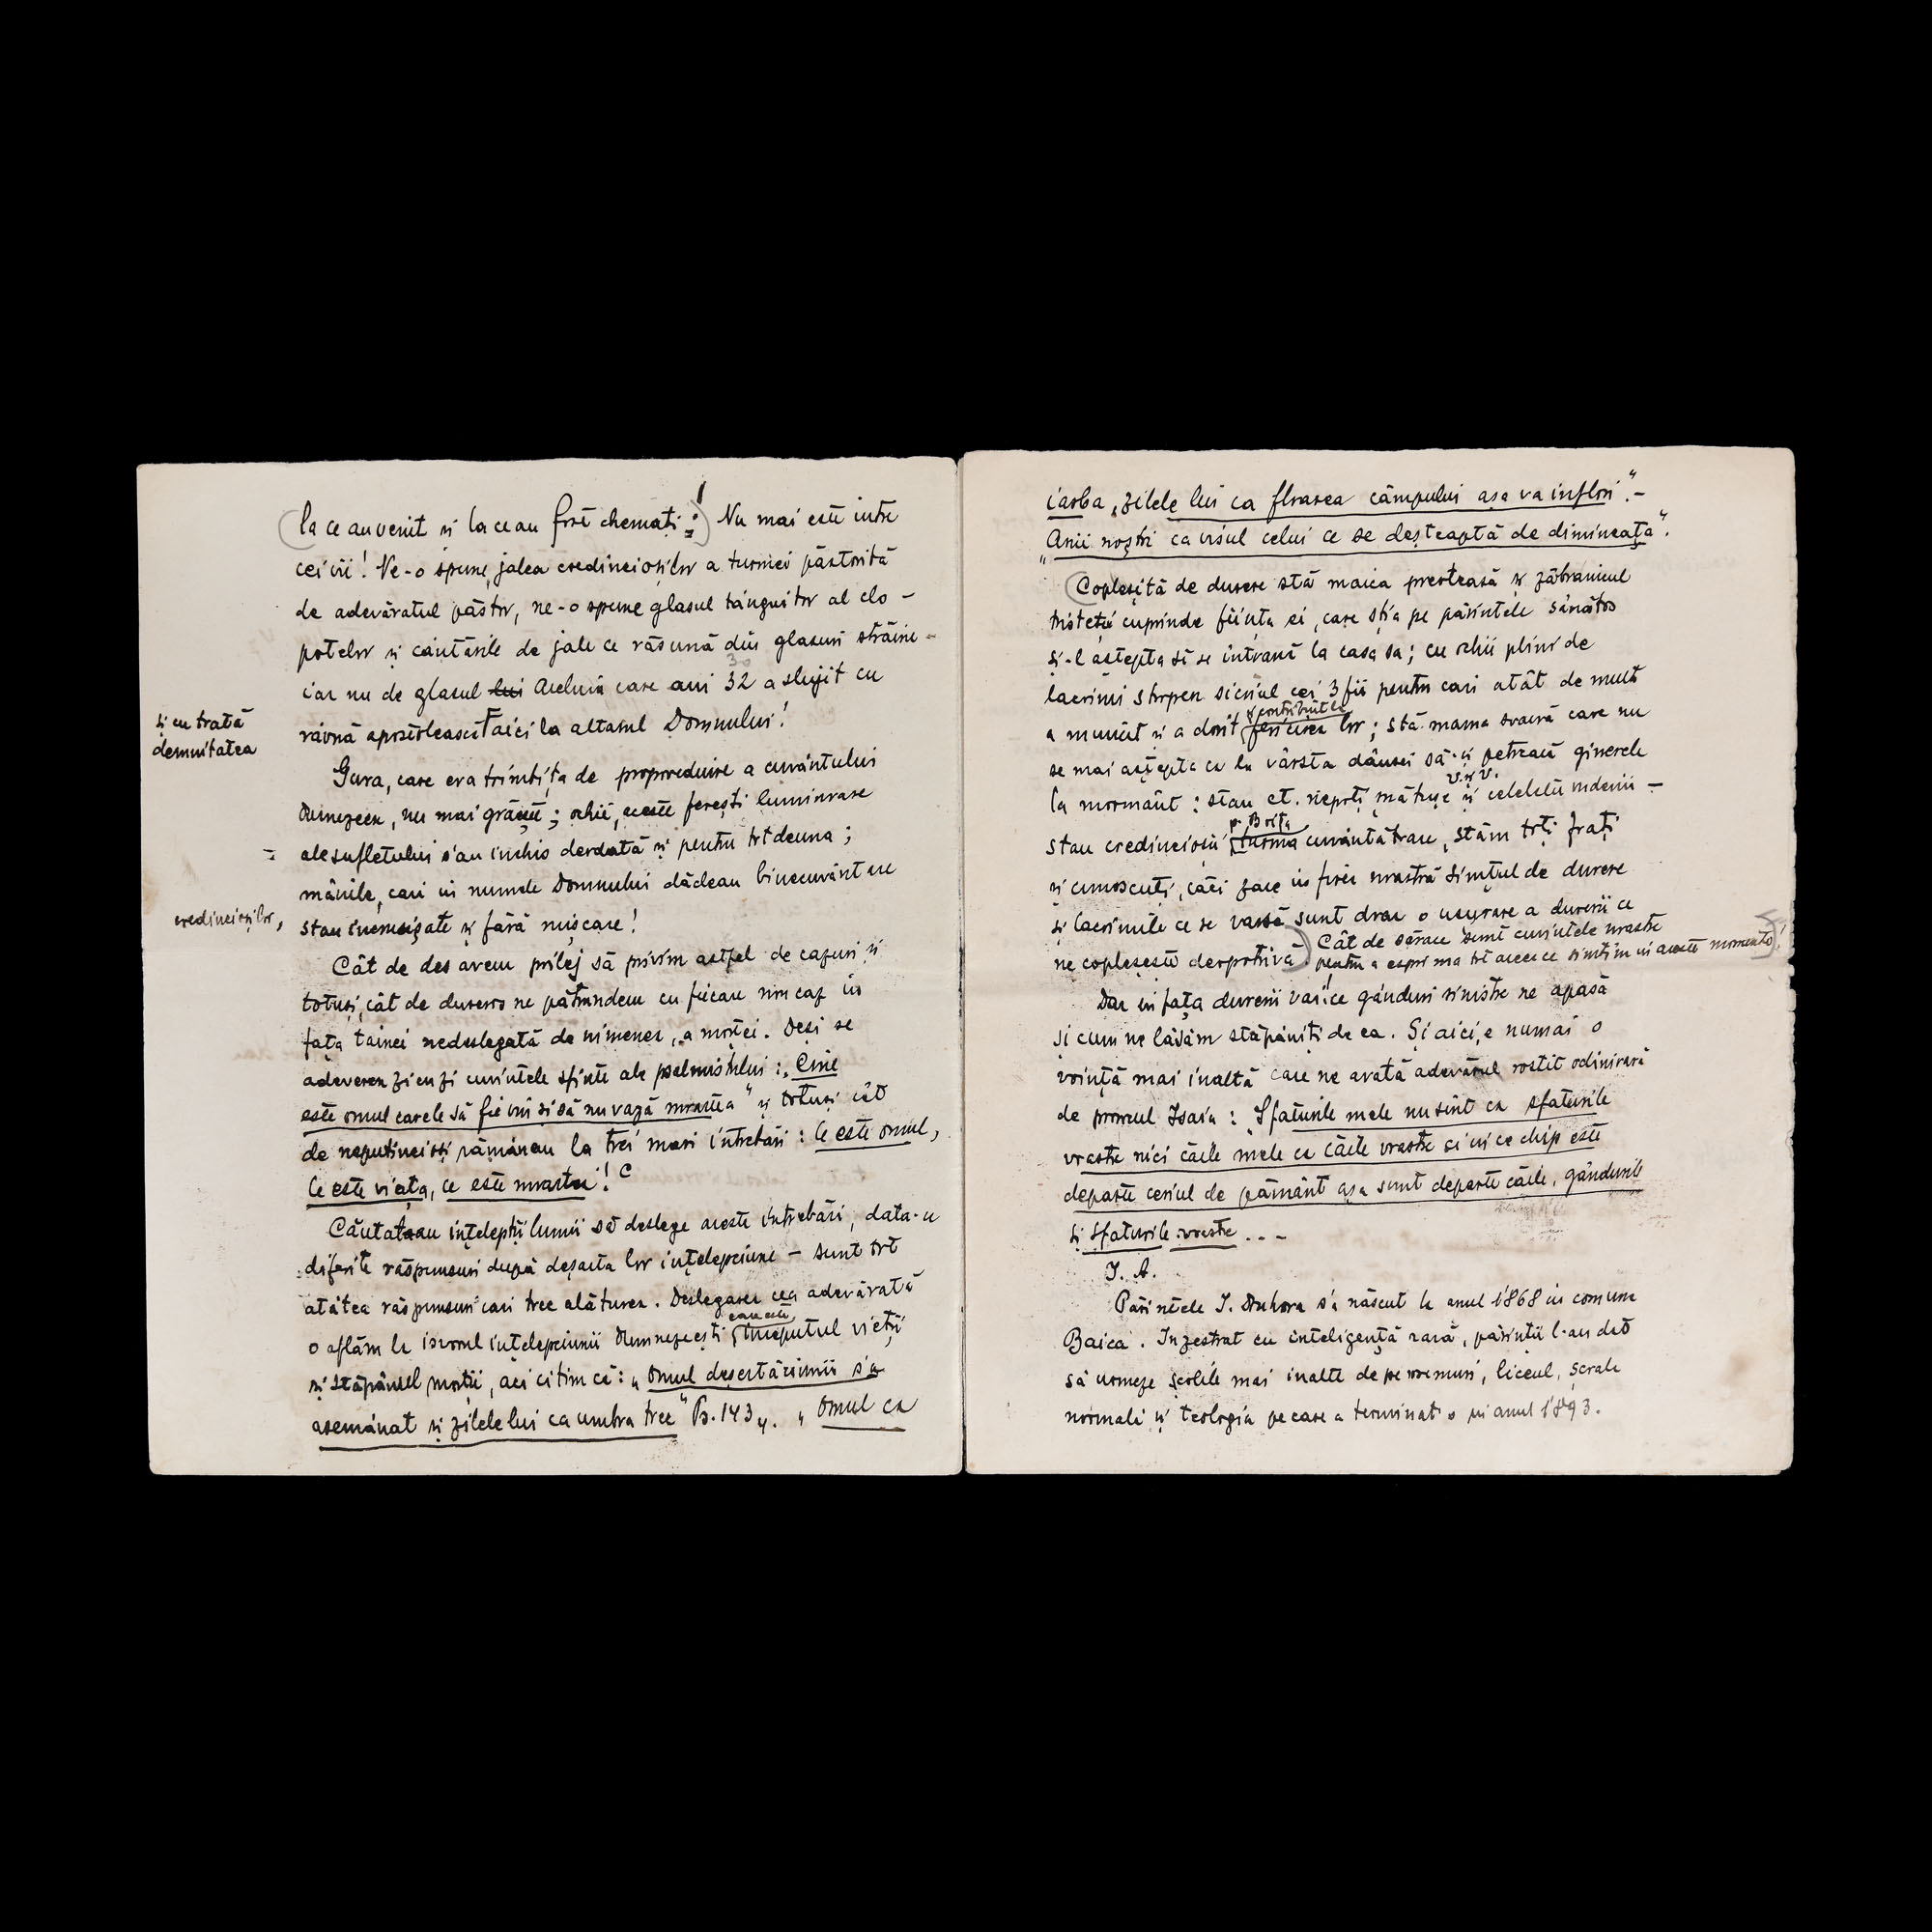 la ce au venit și la ce au fost chemați! Nu mai este intre
cei vii! Ne-o spune, jalea credincioșilor a turmei păstorită
de adevăratul păstor, ne-o spune glasul tânguitor al clo-
potelor și cântările de jale ce răsună din glasuri străine -
30
iar nu de glasul lui Aceluia care ani 32 a slujit cu
și cu toată
demnitatea
râvnă apostolească aici la altarul Domnului!
Gura, care era trîmbița de propoveduire a cuvântului
Dumnezeu, nu mai grăește; ochii, aceste ferești luminoase
ale sufletului s'au inchis deodată și pentru totdeuna;
mânile, cari in numele Domnului dădeau binecuvântare
credincioșilor,
stau incrucișate și fără mișcare!
Cât de des avem prilej să privim astfel de cazuri și
totuși, cât de dureros ne pătrundem cu fiecare nou caz in
fața tainei nedeslegată de nimenea, a morței. Deși se
adeveresc zi cu zi cuvintele sfinte ale psalmistului: „Cine
este omul carele să fie viu și să nu vază moartea" și totuși cât
de neputincioși rămânem la trei mari intrebări: Ce este omul,
Ce este viața, ce este moartea!
Căutat-au ințelepții lumii să deslege aceste intrebări, data-u
diferite răspunsuri după deșarta lor ințelepciune - sunt tot
atâtea răspunsuri cari trec alăturea. Deslegarea cea adevărată
care este
o aflăm la isvorul ințelepciunii Dumnezeești inceputul vieții
și stăpânul morții, aci citim că: „Omul deșertăciunii s'a
asemănat și zilele lui ca umbra trec" Ps. 143 4. „Omul ca
iarba „zilele lui ca floarea câmpului așa va inflori".-
„Anii noștri ca visul celui ce se deșteaptă de dimineața".
Copleșită de durere stă maica preoteasă și zăbranicul
tristeții cuprinde ființa ei, care știa pe părintele sănătos
și-l aștepta să se intoarcă la casa sa; cu ochii plini de
lacrimi stropesc sicriul cei 3 fii pentru cari atât de mult
a muncit și a dorit fericirea lor; stă mama soacră care nu
se mai aștepta ca la vârsta dânsei să-și petreacă ginerele
v. și v.
la mormânt: stau et. nepoți, mătuse și celelelte rudenii -
p. Bocța
stau credincioșii turma cuvântătoare, stăm toți frați
și cunoscuți, căci zace in firea noastră simțul de durere
și lacrimile ce se varsă sunt doar o ușurare a durerii ce
ne copleșește deopotrivă. Cât de sărace sunt cuvintele noastre
pentru a exprima tot aceea ce simțim in aceste momente!
Dar in fața durerii varii ce gânduri siniștre ne apasă
și cum ne lăsăm stăpâniți de ea. Și aici, e numai o
voință mai inaltă care ne arată adevărul rostit odinioară
de proorocul Isaia: „Sfaturile mele nu sînt ca sfaturile
voastre nici căile mele ca căile voastre ci in ce chip este
departe ceriul de pământ așa sunt departe căile, gândurile
și sfaturile voastre...
J. A.
Părintele I. Duhora s'a născut la anul 1868 in comuna
Baica. Inzestrat cu inteligență rară, părinții l-au dat
să urmeze școlile mai inalte de pe vremuri, liceul, școala
normală și teologia pe care a terminat-o in anul 1893.